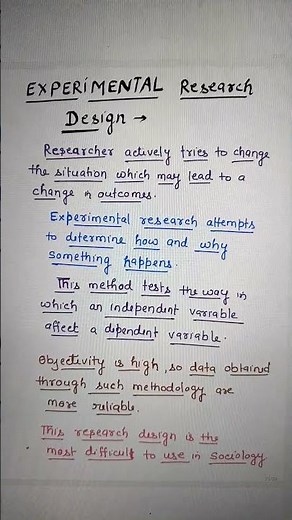 EXPERIMENTAL Research
Design →
Researcher actively tries to change
the situation which may lead to a
change in outcomes.
Experimental research attempts
to determine how and why
something happens.
This method tests the way in
which an independent variable
affect a dependent variable.
Objectivity is high, so data obtained
through such methodology are
more reliable.
This research design is the
most difficult to use in sociology